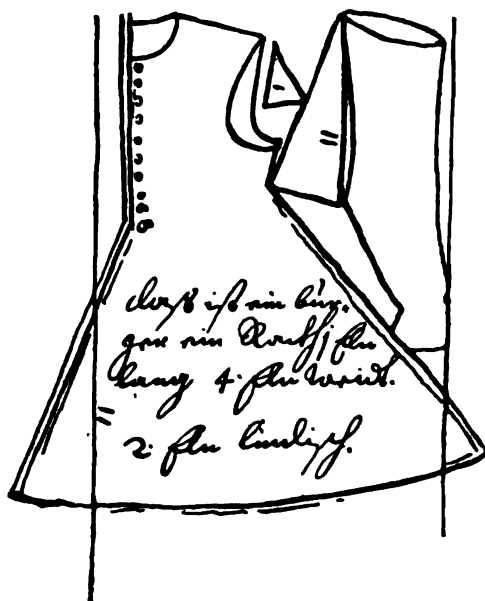 daß ist ein bür.
ger ein j eln
lang 4. eln weid.
2. eln lindisch.